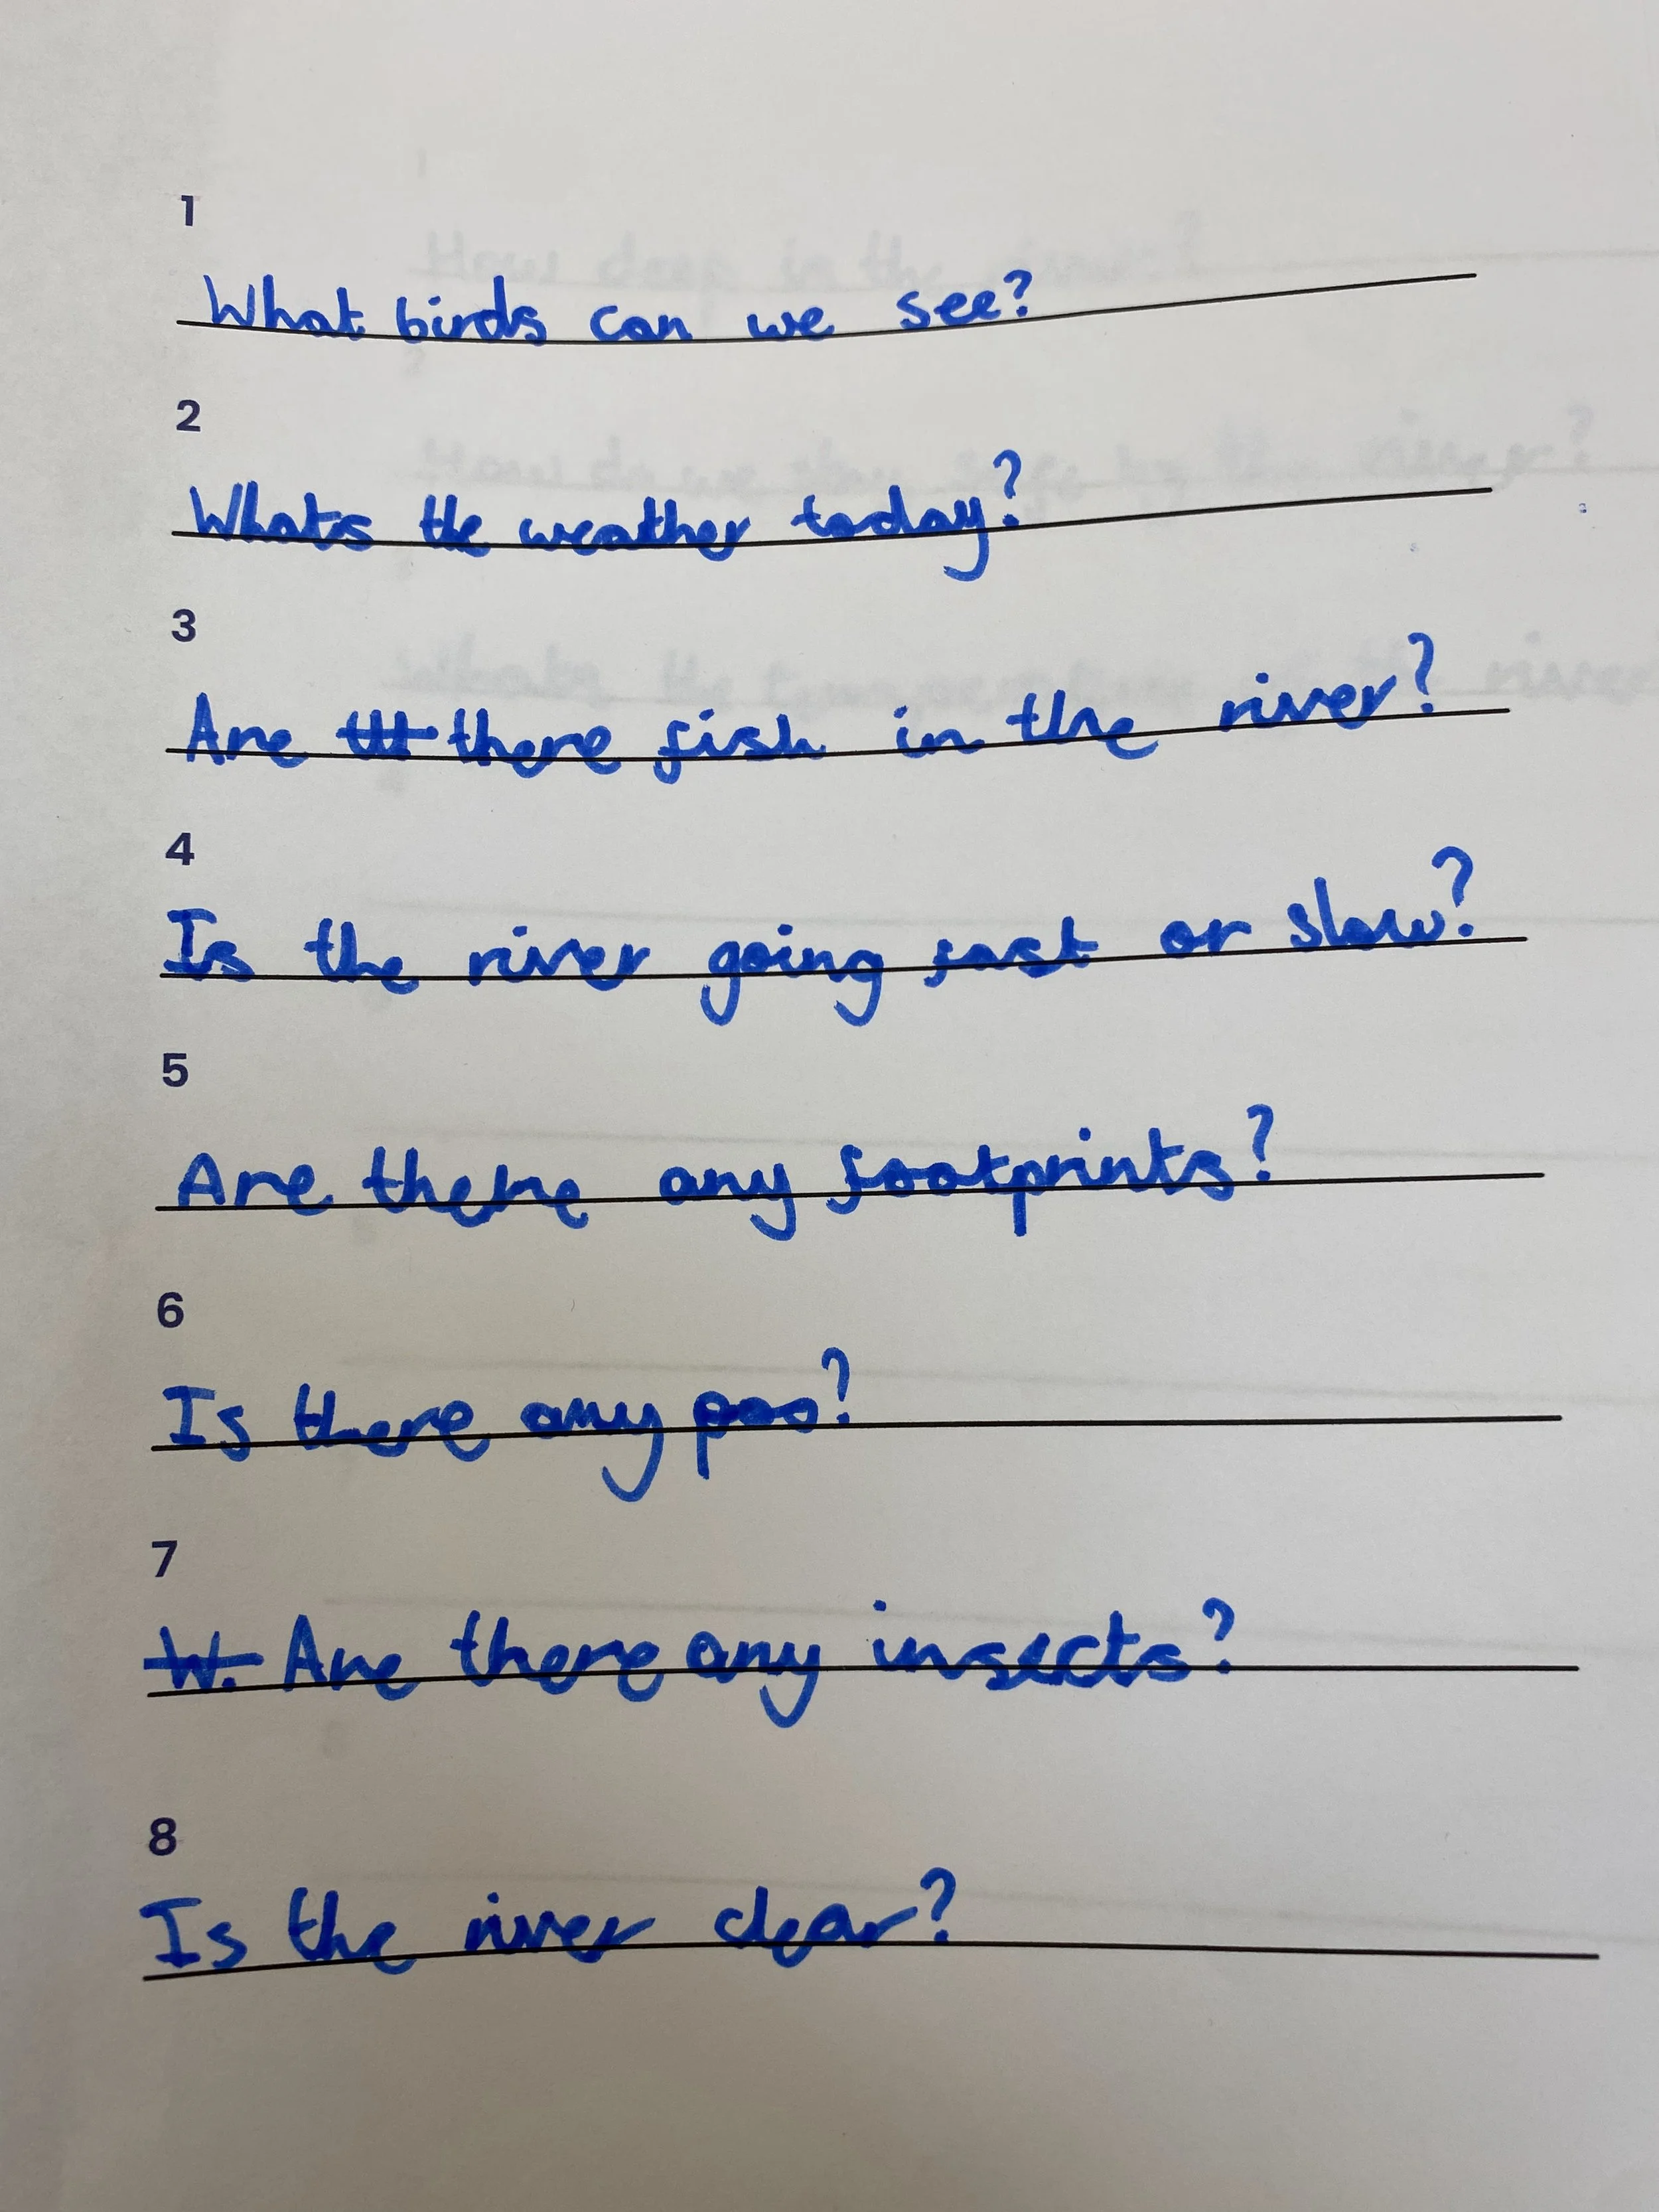 1
What birds can we see?
2
Whats the weather today?
3
Are there fish in the river?
4
Is the river going fast or slow?
5
Are there any footprints?
6
Is there any poo?
7
W. Are there any insects?
8
Is the river clear?